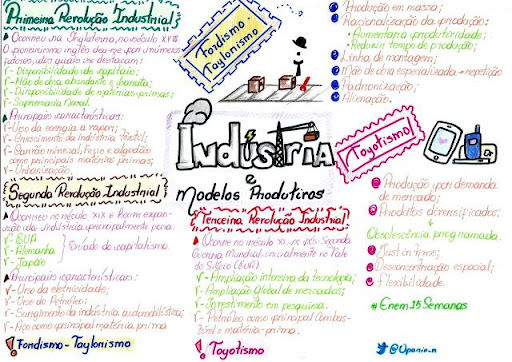 Primeira Revolução Industrial
Ocorreu na Inglaterra, no século XVIII
O pioneirismo inglês deu-se por inúmeros
fatores, dos quais se destacam:
Disponibilidade de capitais;
Mão de obra abundante e barata;
Disponibilidade de matérias-primas;
Supremacia Naval.
Principais características:
Uso da energia a vapor;
Crescimento da indústria têxtil;
Carvão mineral, ferro e algodão
como principais matérias primas;
Urbanização.
Segunda Revolução Industrial
Ocorreu no século XIX e houve expan-
são da Indústria principalmente para:
EUA
Alemanha
Japão
Entrada do capitalismo
Principais características:
Uso da eletricidade;
Uso do Petróleo;
Surgimento da indústria automobilística;
Aço como principal matéria prima
Fordismo - Taylorismo
Fordismo -
Taylorismo
Indústria
e
Modelos Produtivos
Terceira Revolução Industrial
Ocorre no século XX, no pós-Segunda
Guerra Mundial, inicialmente no Vale
do Silício (EUA)
Ampliação intensiva da tecnologia;
Ampliação Global de mercados;
Investimento em pesquisa.
Petróleo como principal combus-
tível e matéria-prima.
Toyotismo
Produção em massa;
Racionalização da produção:
Aumentar a produtividade;
Reduzir tempo de produção;
Linha de montagem;
Mão de obra especializada - repetição
Padronização;
Alienação.
Toyotismo
Produção por demanda
de mercado;
Produtos diversificados;
Obsolescência programada.
Just in time;
Desconcentração espacial;
Flexibilidade.
#Enem15Semanas